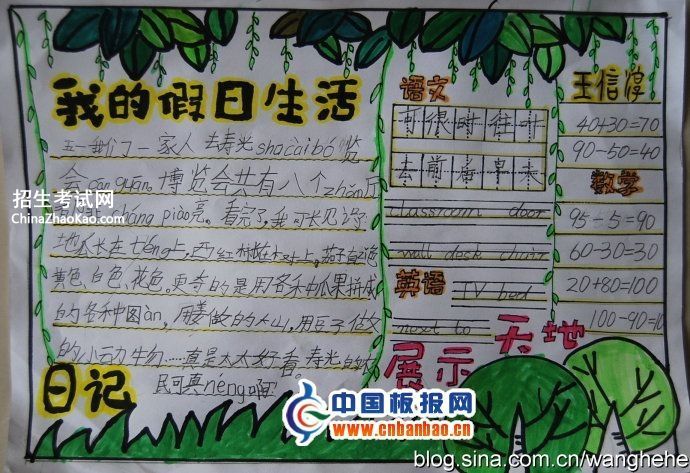 我的假日生活
五一我们一家人去寿光shacaibó览
会 博览会共有八个zhǎn厅
piào亮。看完了,我可长见识了
地瓜长在téng上,西红柿长在 上,茄子有
黄色、白色、花色。更奇的是用各种瓜果拼成
的各种图àn,用姜做的大山,用豆子做
的小动物……真是太太好看。寿光的农
民可真néng啊
日记
语文
可很时往叶
去前看早来
classroom door
wall desk chair
英语
TV bed
next to
王信淳
40+30=70
90-50=40
数学
95-5=90
60-30=30
20+80=100
100-90=10
展示天地
招生考试网
ChinaZhaoKao.com
中国板报网
www.cnbanbao.cn
blog.sina.com.cn/wanghehe